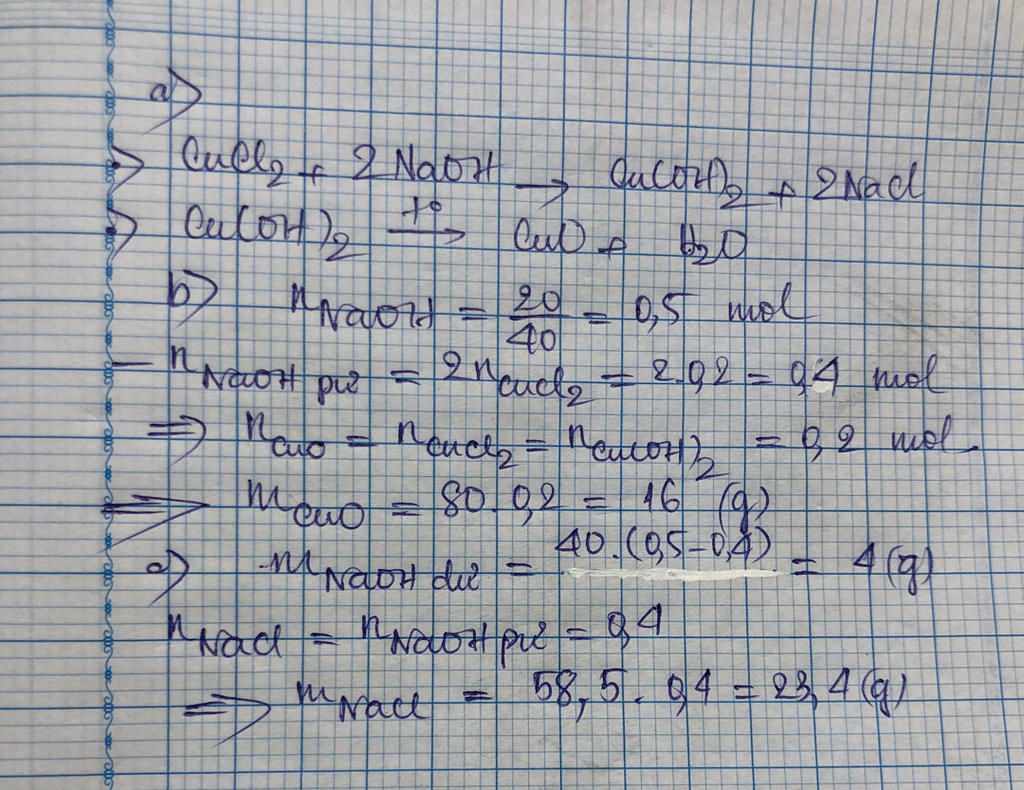 a)
> CuCl₂ + 2NaOH → Cu(OH)₂ + 2NaCl
> Cu(OH)₂ —t°→ CuO + H₂O
b) nNaOH = 20/40 = 0,5 mol
- nNaOH pư = 2nCuCl₂ = 2.0,2 = 0,4 mol
=> nCuO = nCuCl₂ = nCu(OH)₂ = 0,2 mol.
=> mCuO = 80.0,2 = 16 (g)
c) mNaOH dư = 40.(0,5-0,4) = 4(g)
nNaCl = nNaOH pư = 0,4
=> mNaCl = 58,5.0,4 = 23,4(g)